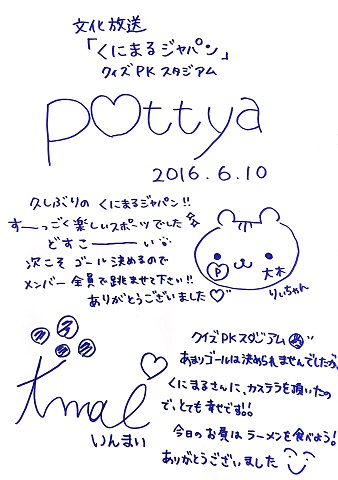 文化放送
「くにまるジャパン」
クイズPKスタジアム
pottya
2016.6.10
久しぶりの くにまるジャパン!!
すーっごく楽しいスポーツでした
どすこーーーい
次こそ ゴール決めるので
メンバー 全員で跳ませて下さい!!
ありがとうございました
P
大木
りぃちゃん
いんまい
クイズPKスタジアム
あまりゴールは決められませんでしたが、
くにまるさんに、カステラを頂いたの
で、とても幸せです!!
今日のお昼はラーメンを食べよう!
ありがとうございました